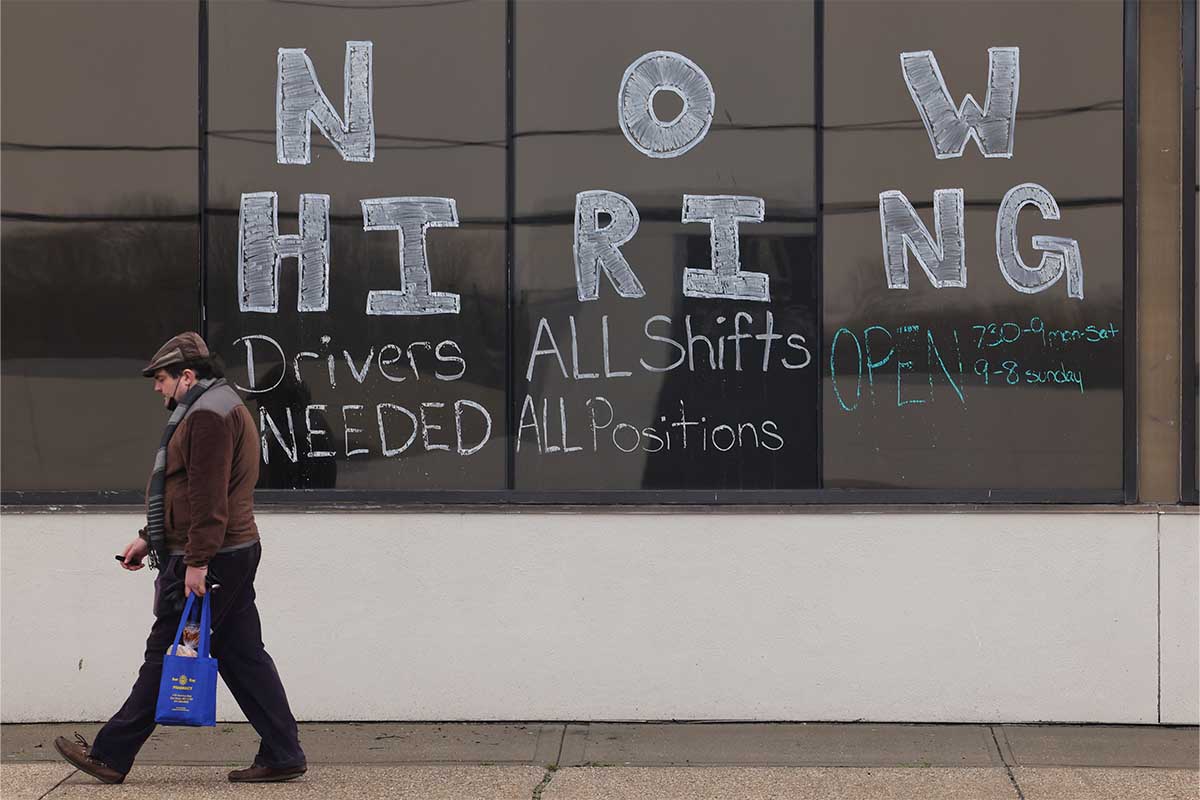 NOW
HIRING
Drivers ALL Shifts
NEEDED ALL Positions
OPEN 730-9 mon-sat
9-8 sunday
PHARMACY